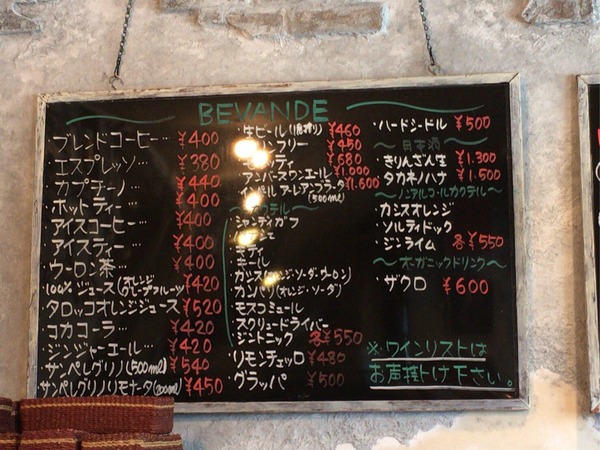 BEVANDE
ブレンドコーヒー… ¥400
エスプレッソ… ¥380
カプチーノ… ¥440
ホットティー… ¥400
アイスコーヒー… ¥400
アイスティー… ¥400
ウーロン茶… ¥400
100%ジュース(オレンジ・グレープフルーツ) ¥420
タロッコオレンジジュース ¥520
コカコーラ… ¥420
ジンジャーエール… ¥420
サンペレグリノ(500ml) ¥540
サンペレグリノリモナータ(200ml) ¥450
・生ビール(1番搾り) ¥460
フリー ¥450
¥680
アンバースワンエール ¥1.000
・インペリアーレアンブラータ ¥1.600
(500ml)
クテル〜
シャンディガフ
カシス(オレンジ・ソーダ・ウーロン)
カンパリ(オレンジ・ソーダ)
モスコミュール
スクリュードライバー
ジントニック 各¥550
・リモンチェッロ ¥480
・グラッパ ¥500
・ハードシードル ¥500
〜日本酒〜
きりんざん生 ¥1.300
タカネノハナ ¥1.500
〜ノンアルコールカクテル〜
カシスオレンジ
・ソルティドック
・ジンライム 各¥550
〜オーガニックドリンク〜
・ザクロ ¥600
※ワインリストは
お声掛け下さい。